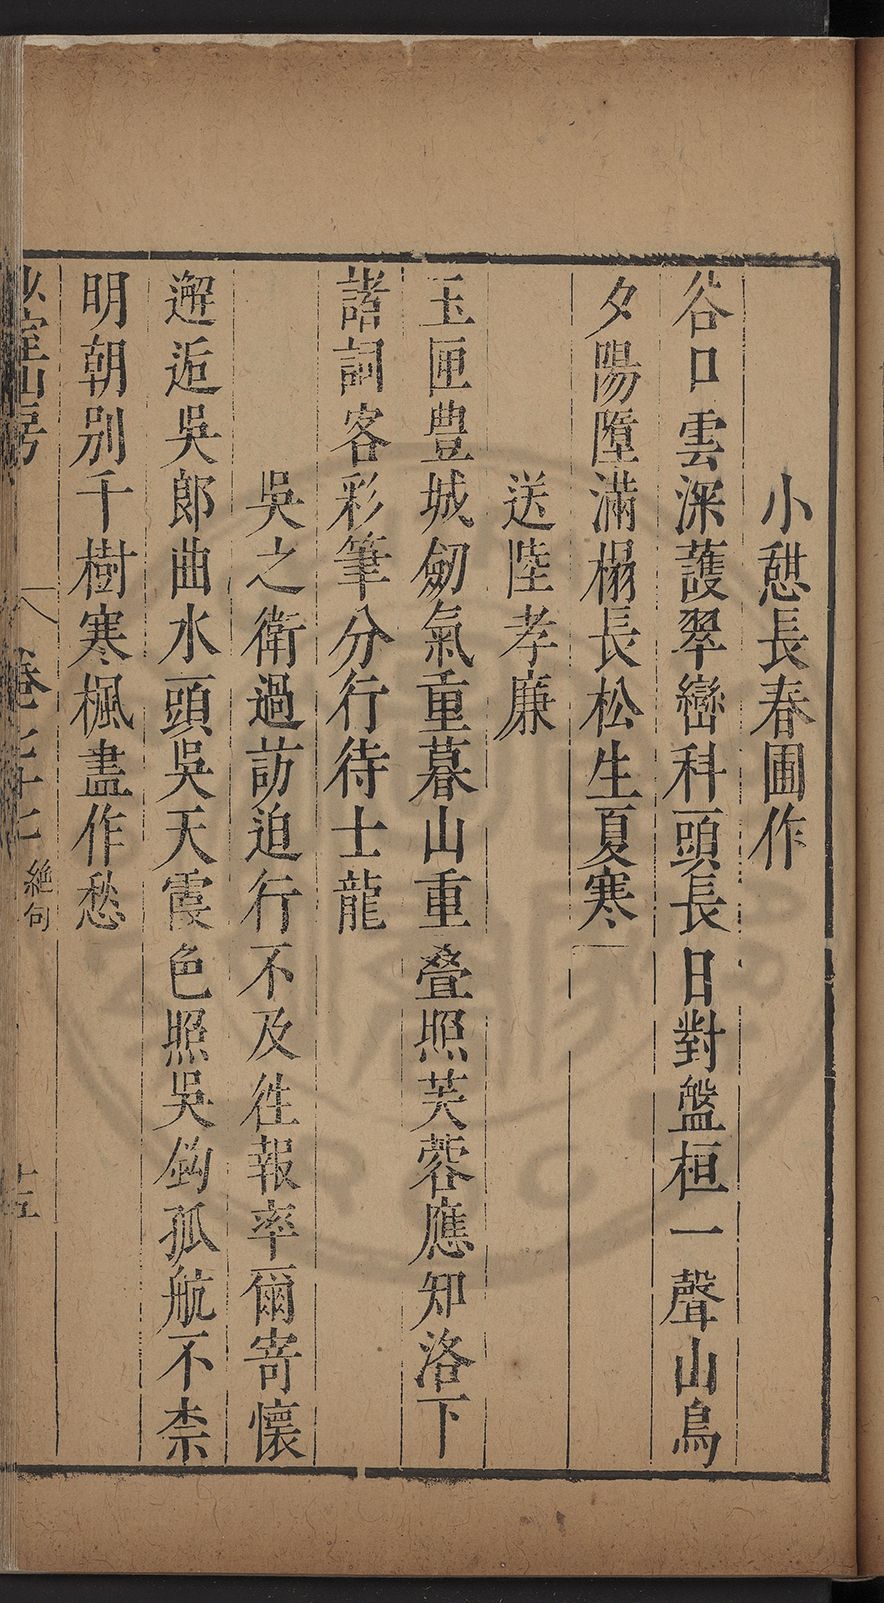 小憇長春圃作
谷口雲深蒦翠巒科頭長日對盤桓一聲山鳥
夕陽墮滿榻長松生夏寒
送陸孝廉
玉匣豊城劒氣重暮山重疊照芙蓉應知洛下
諸詞客彩筆分行待士龍
吳之衛過訪迫行不及徃報率爾寄懷
邂逅吳郎曲水頭吳天霞色照吳鈎孤航不柰
明朝別千樹寒楓盡作愁
山房
卷七十七 絶句 十五